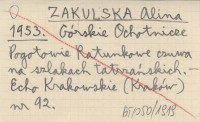 ZAKULSKA Alina
1953. Górskie Ochotnicze
Pogotowie Ratunkowe czuwa
na szlakach tatrzańskich. –
Echo Krakowskie (Kraków)
nr 92.
BT/50/1919